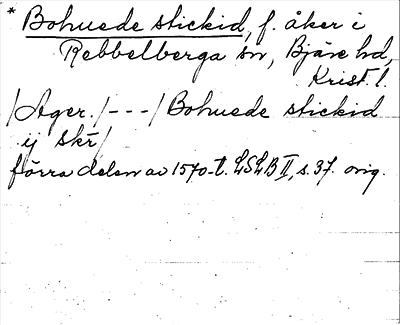 * Bohuede stickid, f. åker i
Rebbelberga sn, Bjäre hd,
Krist. l.
/Ager./---/Bohuede stickid
ij skr̄/
förra delen av 1570-t. LSLB II, s. 37. orig.